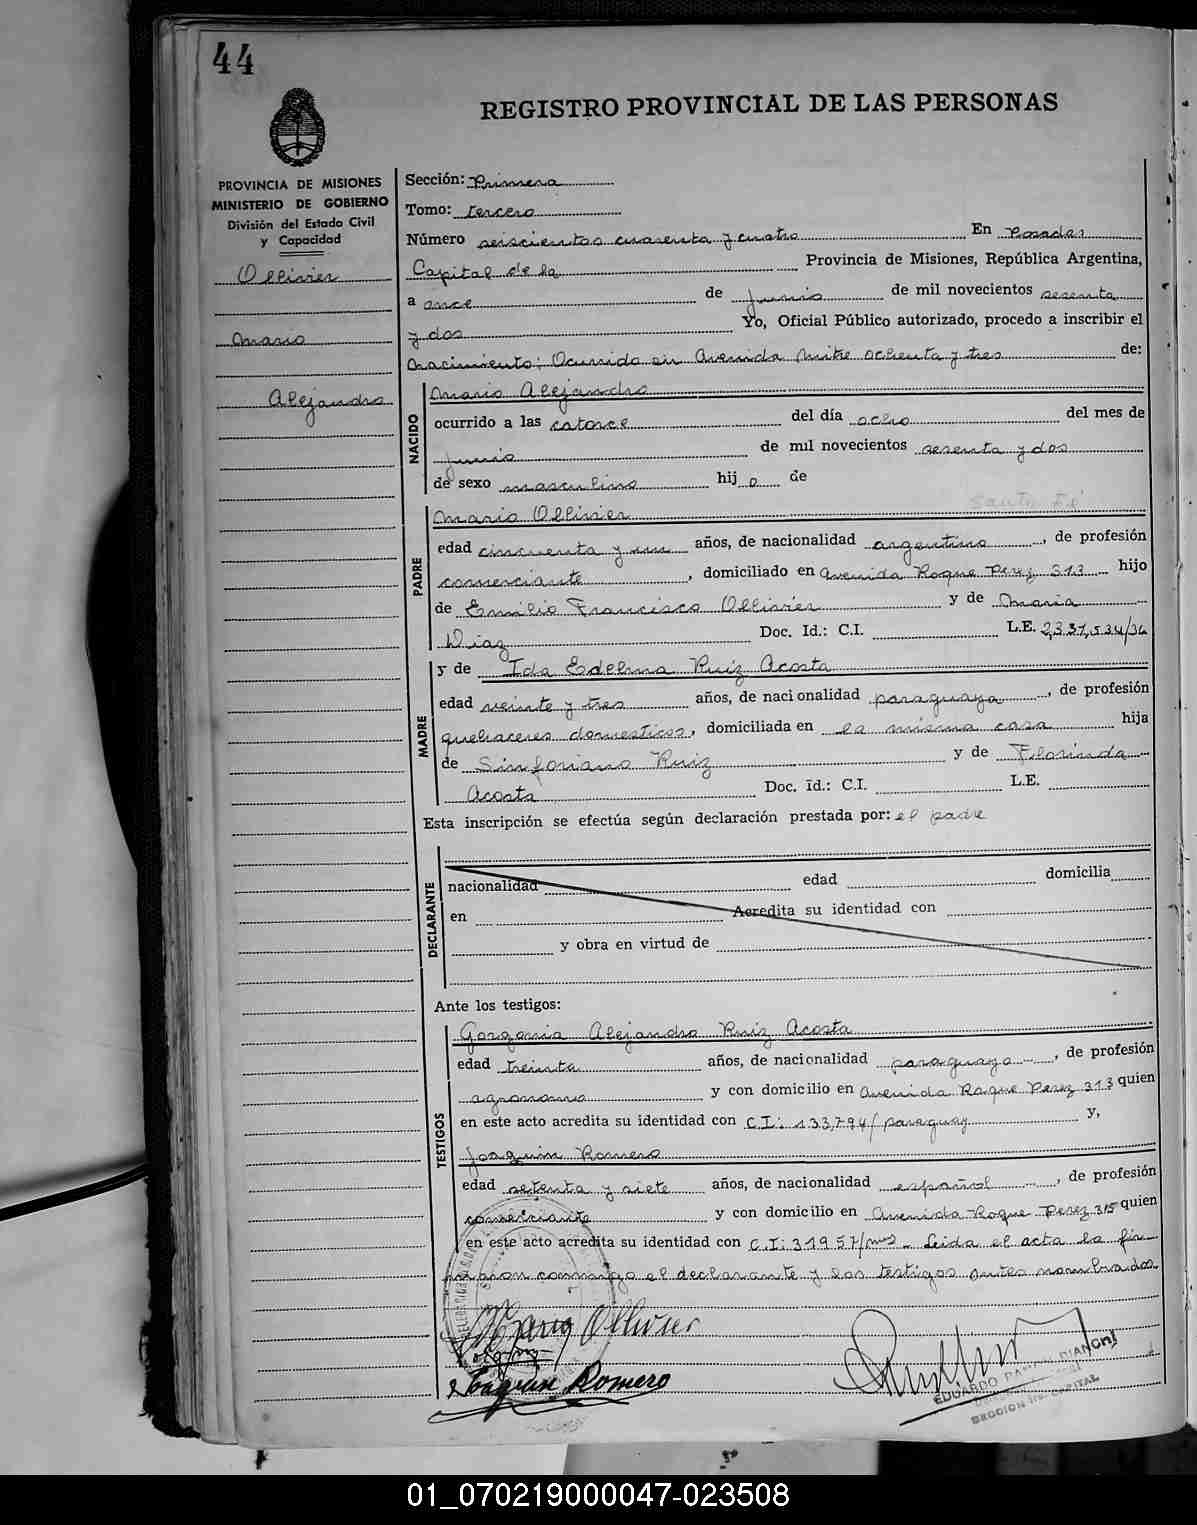 44
REGISTRO PROVINCIAL DE LAS PERSONAS
PROVINCIA DE MISIONES
MINISTERIO DE GOBIERNO
División del Estado Civil
y Capacidad
Ollivier
Mario
Alejandro
Sección: Primera
Tomo: tercero
Número seiscientos cuarenta y cuatro En Posadas
Capital de la Provincia de Misiones, República Argentina,
a once de junio de mil novecientos sesenta
y dos Yo, Oficial Público autorizado, procedo a inscribir el
nacimiento: Ocurrido en Avenida Mitre ochenta y tres de:
NACIDO
Mario Alejandro
ocurrido a las catorce del día ocho del mes de
junio de mil novecientos sesenta y dos
de sexo masculino hijo de
Santa Fé
PADRE
Mario Ollivier
edad cincuenta y un años, de nacionalidad argentino, de profesión
comerciante, domiciliado en Avenida Roque Perez 313 hijo
de Emilio Francisco Ollivier y de Maria
Diaz Doc. Id.: C.I. L.E. 2,337,534/36
MADRE
y de Ida Edelma Ruiz Acosta
edad veinte y tres años, de nacionalidad paraguaya, de profesión
quehaceres domesticos, domiciliada en la misma casa hija
de Sinforiano Ruiz y de Florinda
Acosta Doc. Id.: C.I. L.E.
Esta inscripción se efectúa según declaración prestada por: el padre
DECLARANTE
nacionalidad edad domicilia
en Acredita su identidad con
y obra en virtud de
Ante los testigos:
TESTIGOS
Gorgonia Alejandro Ruiz Acosta
edad treinta años, de nacionalidad paraguayo, de profesión
agronomo y con domicilio en Avenida Roque Perez 313 quien
en este acto acredita su identidad con C.I: 133,794/paraguay y,
Joaquin Romero
edad setenta y siete años, de nacionalidad español, de profesión
comerciante y con domicilio en Avenida Roque Perez 315 quien
en este acto acredita su identidad con C.I: 31957/mnes Leida el acta la fir-
maron conmigo el declarante y los testigos antes nombrados.
Mario Ollivier
Joaquin Romero
EDUARDO
SECCION 1ra. CAPITAL
01_070219000047-023508